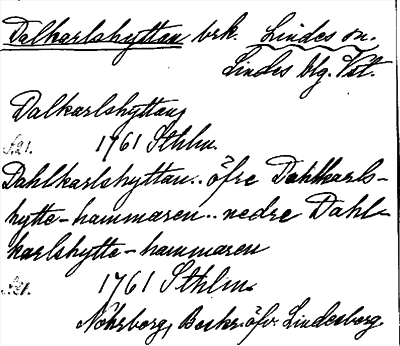 Dalkarlshyttan brk. Lindes sn.
Lindes blg. Vst.
Dalkarlshyttan,
1761 Sthlm.
Dahlkarlshyttan.. öfre Dahlkarls-
hytte-hammaren.. nedre Dahl-
karlshytte-hammaren
1761 Sthlm.
Nohrborg, Beskr. öfv. Lindesberg.